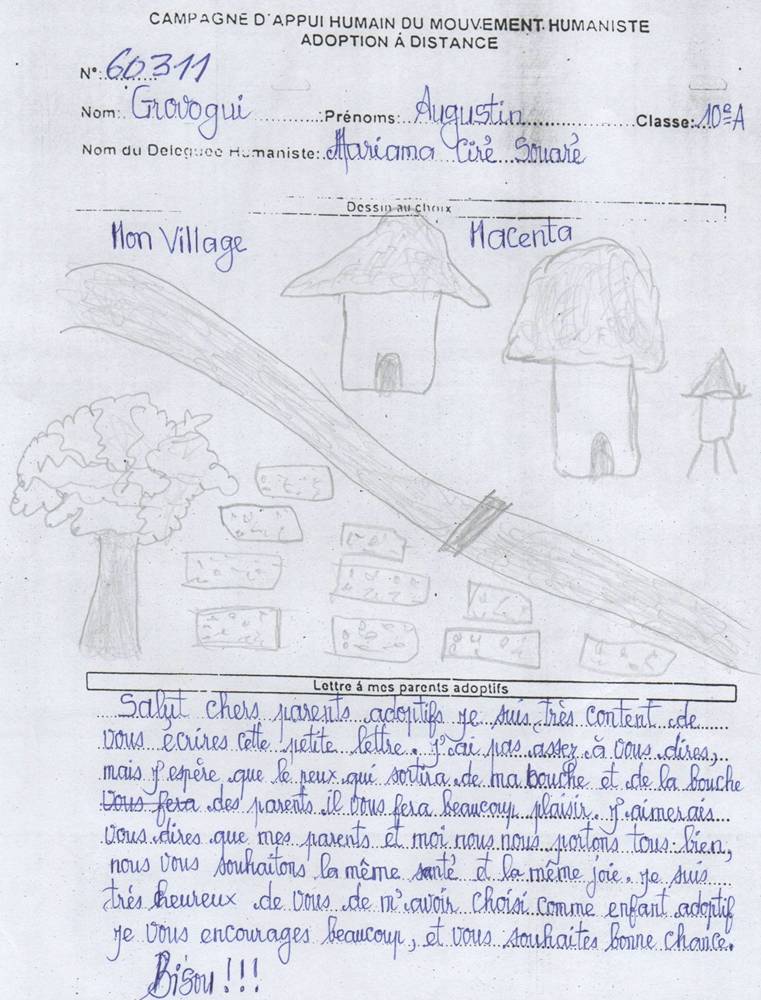 CAMPAGNE D'APPUI HUMAIN DU MOUVEMENT HUMANISTE
ADOPTION Á DISTANCE
N°: 60311
Nom: Grovogui Prénoms: Augustin Classe: 10e A
Nom du Deleguee Humaniste: Mariama Ciré Souaré
Dessin au choix
Mon Village Macenta
Lettre á mes parents adoptifs
Salut chers parents adoptifs je suis très content de
vous écrires cette petite lettre. J'ai pas assez à vous dires,
mais j'espère que le peux qui sortira de ma bouche et de la bouche
vous fera des parents il vous fera beaucoup plaisir. J'aimerais
vous dires que mes parents et moi nous nous portons tous bien,
nous vous souhaitons la même santé et la même joie. Je suis
très heureux de vous de m'avoir choisi comme enfant adoptif
je vous encourages beaucoup, et vous souhaites bonne chance.
Bisou !!!